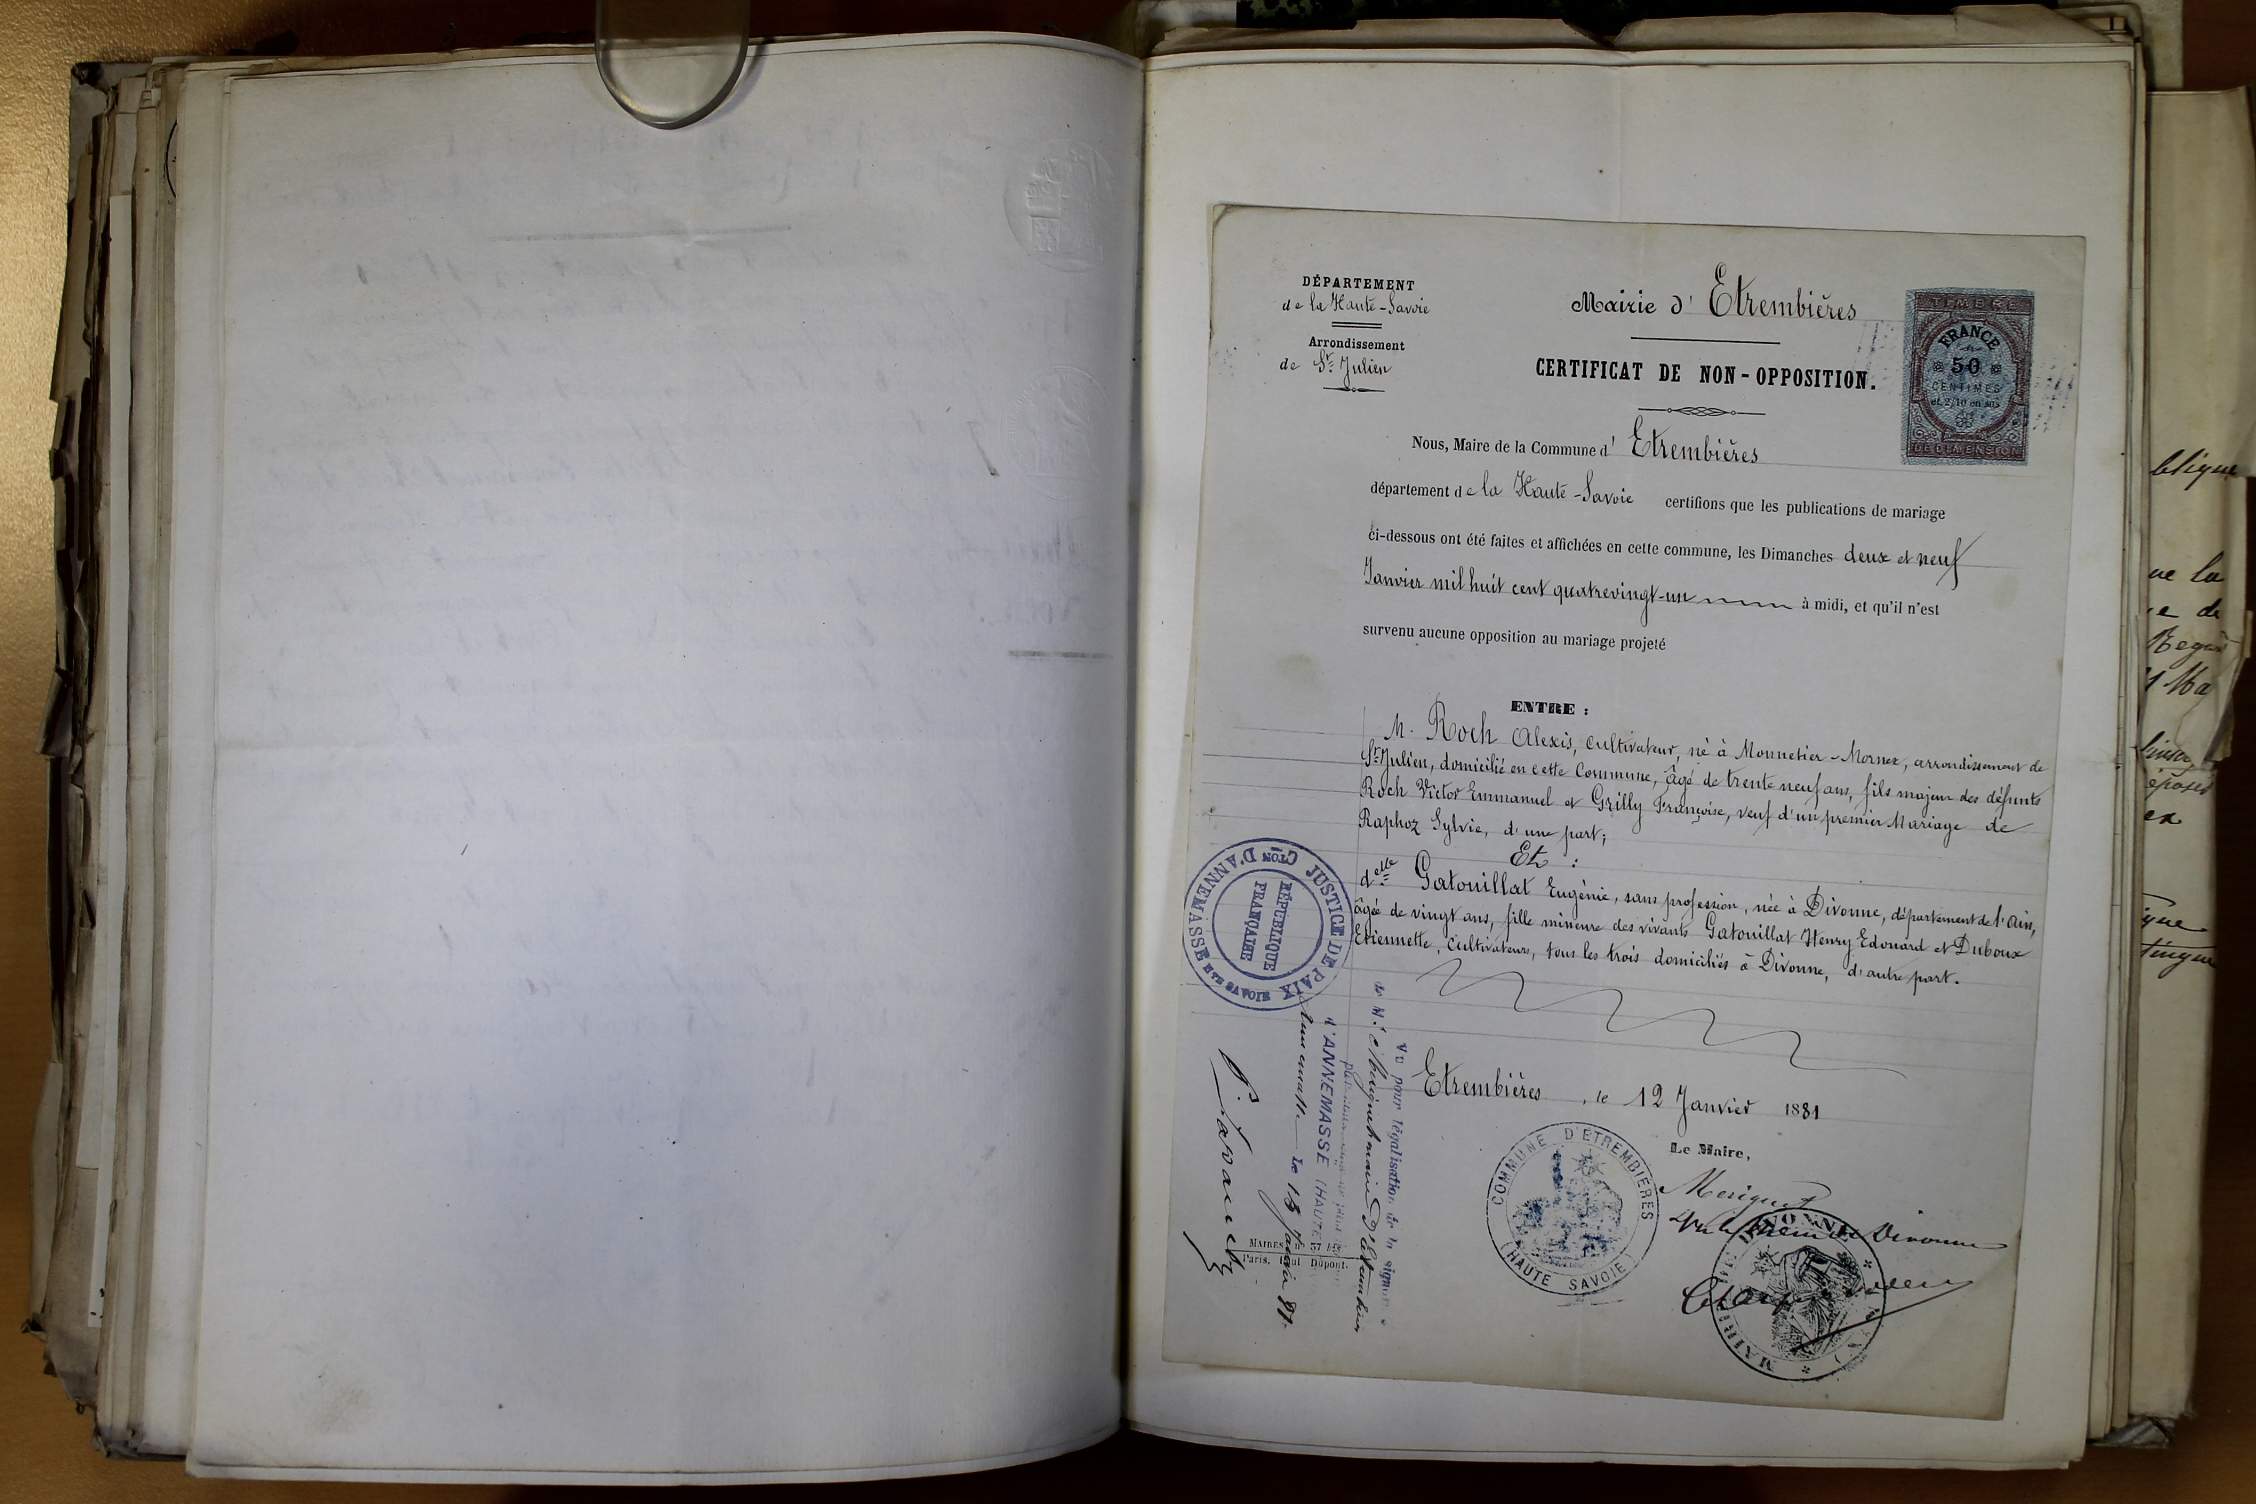 DÉPARTEMENT
de la Haute-Savoie
Arrondissement
de St. Julien
Mairie d' Etrembières
CERTIFICAT DE NON-OPPOSITION.
TIMBRE
FRANCE
50
CENTIMES
et 2/10 en sus
DE DIMENSION
Nous, Maire de la Commune d' Etrembières
département de la Haute-Savoie certifions que les publications de mariage
ci-dessous ont été faites et affichées en cette commune, les Dimanches deux et neuf
Janvier mil huit cent quatrevingt-un à midi, et qu'il n'est
survenu aucune opposition au mariage projeté
ENTRE :
M. Roch Alexis, cultivateur, né à Monnetier-Mornex, arrondissement de
St. Julien, domicilié en cette Commune, âgé de trente neuf ans, fils majeur des défunts
Roch Victor Emmanuel et Grilly Françoise, veuf d'un premier Mariage de
Raphoz Sylvie, d'une part;
Et :
delle Gatouillat Eugénie, sans profession, née à Divonne, département de l'ain,
âgée de vingt ans, fille mineure des vivants Gatouillat Henry Edouard et Duboux
Etiennette, Cultivateurs, tous les trois domiciliés à Divonne, d'autre part.
Etrembières, le 12 Janvier 1881
Le Maire,
COMMUNE D'ETREMBIÈRES
(HAUTE SAVOIE)
MAIRIE DE DIVONNE
JUSTICE DE PAIX
Cton D'ANNEMASSE
Hte SAVOIE
RÉPUBLIQUE
FRANÇAISE
Vu pour légalisation de la signature
de M.
d'ANNEMASSE (HAUTE
Annemasse le 13 Janvier 81
Paris. Paul Dupont.
blique
ue la
e de